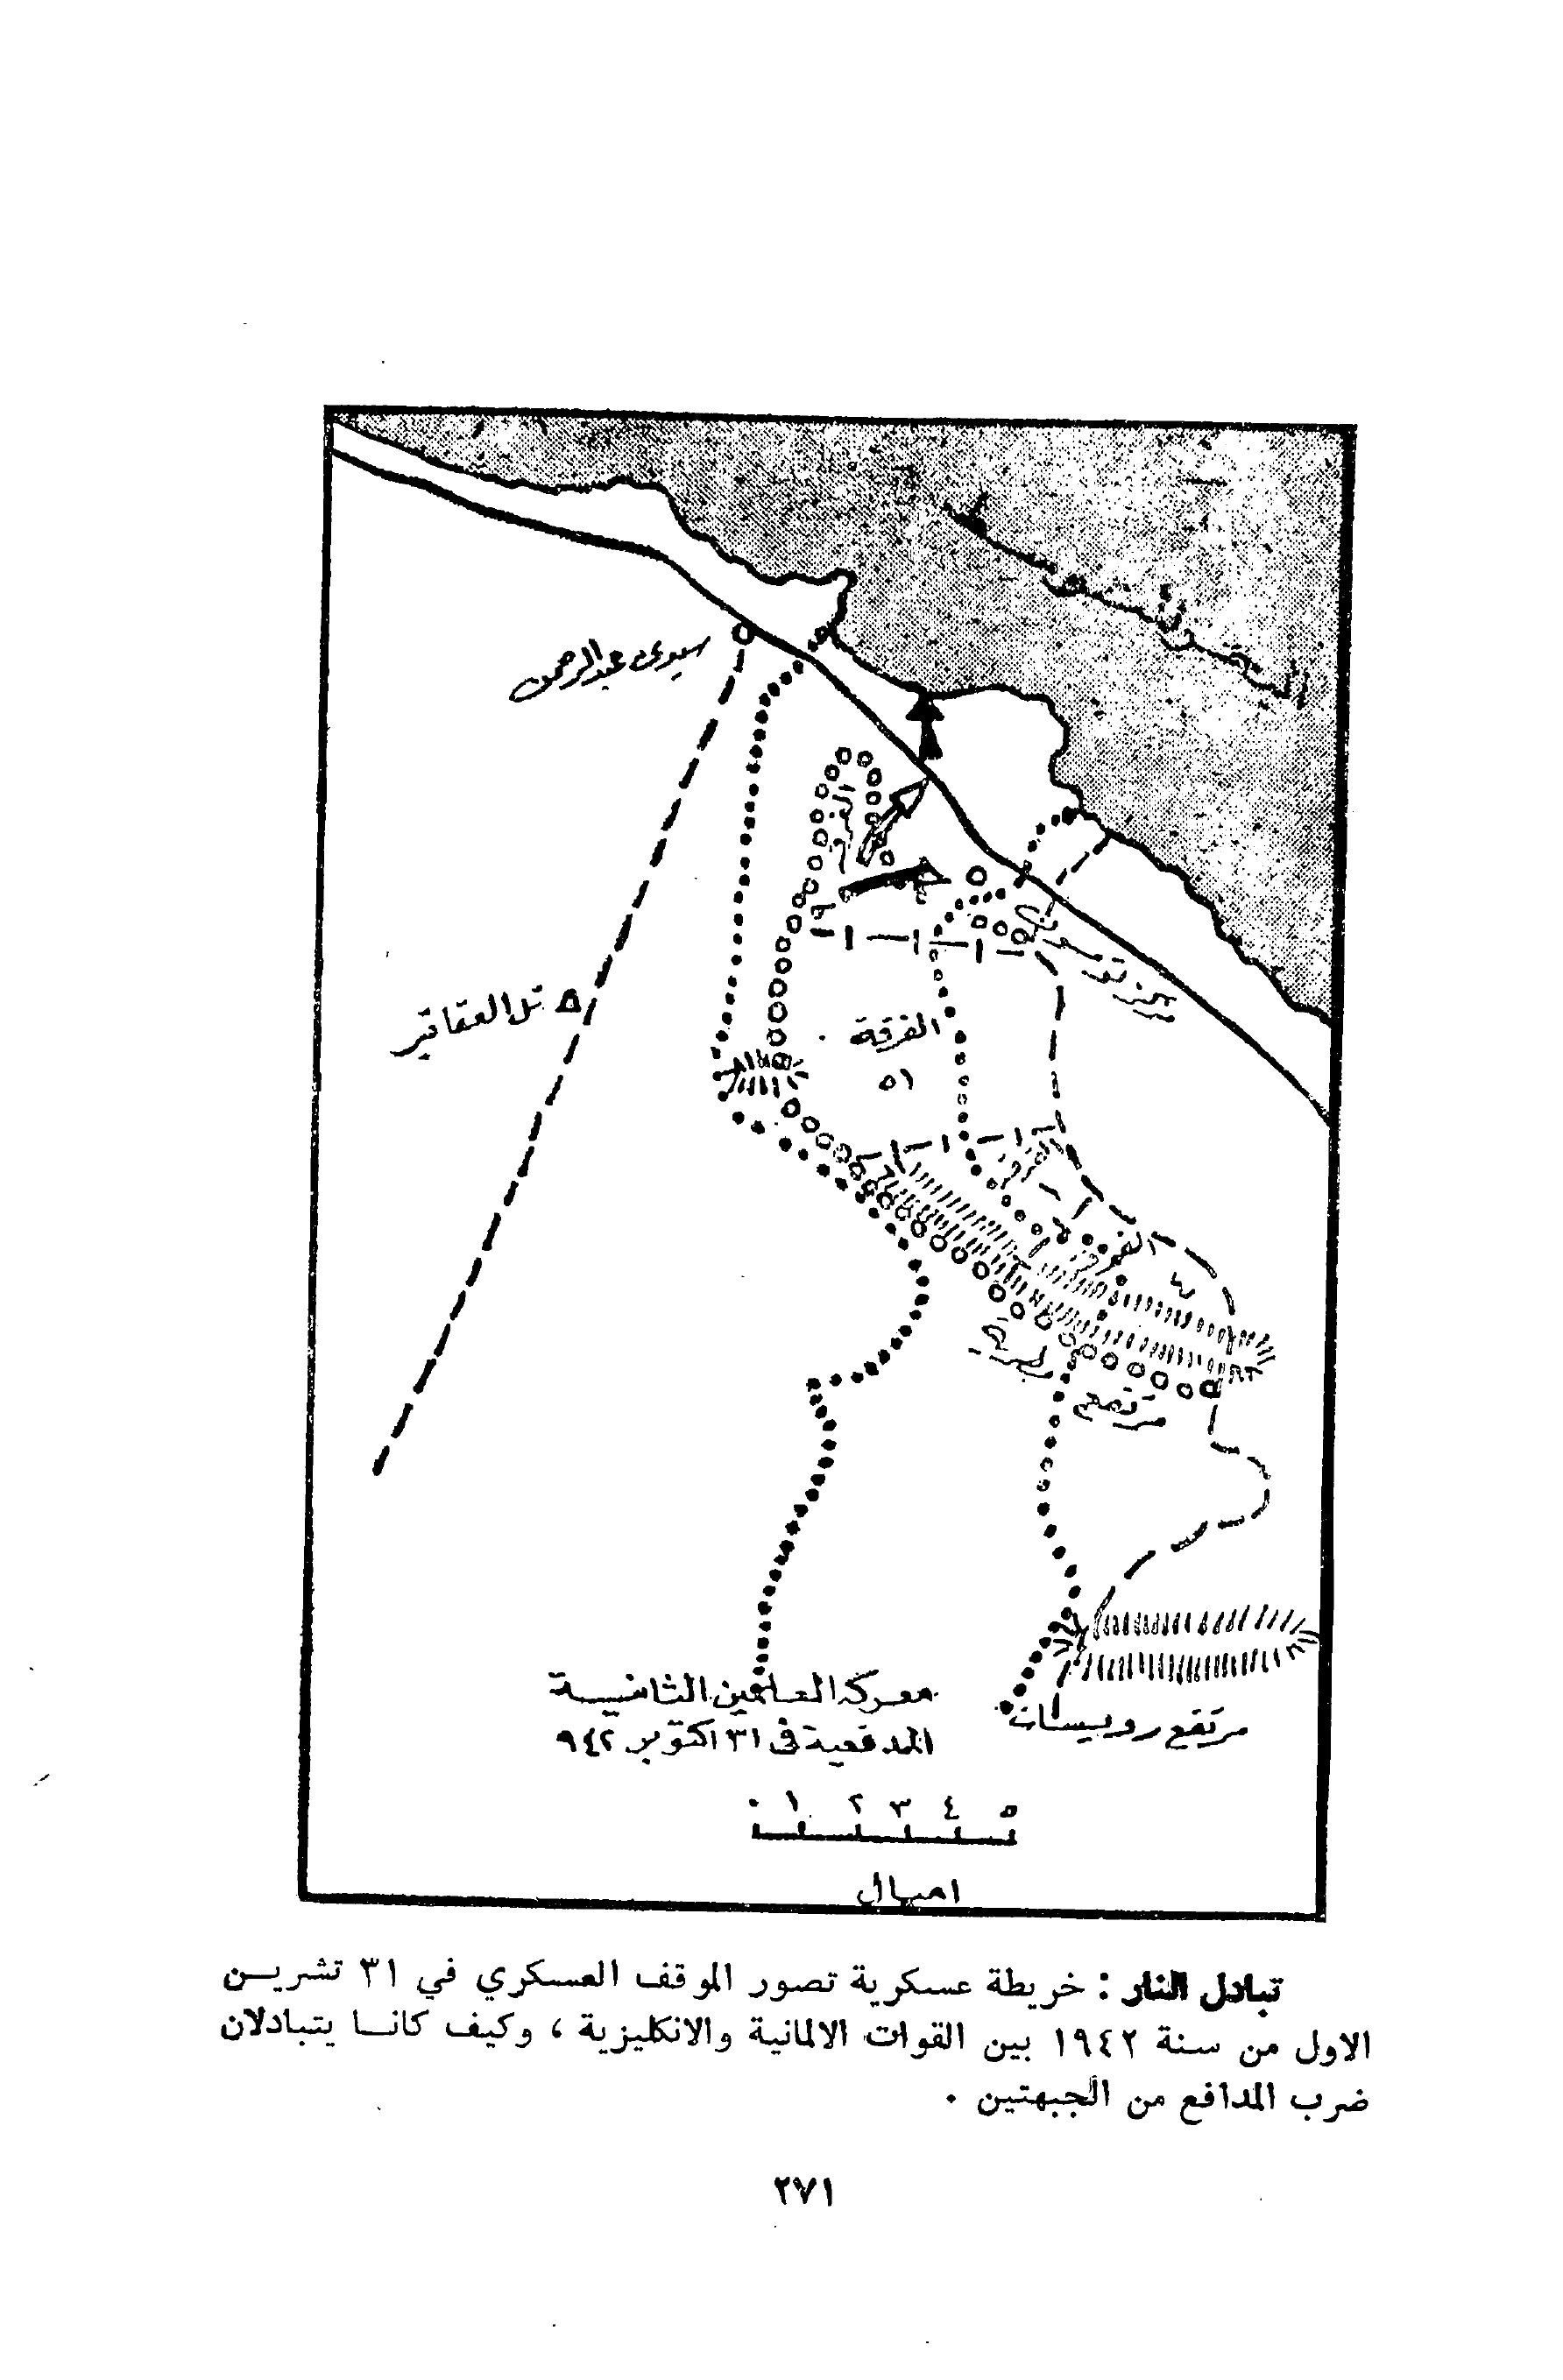 سيدى عبد الرحمن
تل العقاقير
الفرقة
٥١
الفرقة
٤
مرتفع
مرتفع رويسات
معركة العلمين الثانية
المدفعية فى ٣١ اكتوبر ٩٤٢
٠ ١ ٢ ٣ ٤ ٥
اميال
تبادل النار : خريطة عسكرية تصور الموقف العسكري في ٣١ تشريــن
الاول من سنة ١٩٤٢ بين القوات الالمانية والانكليزية ، وكيف كانــا يتبادلان
ضرب المدافع من الجبهتين ٠
٢٧١